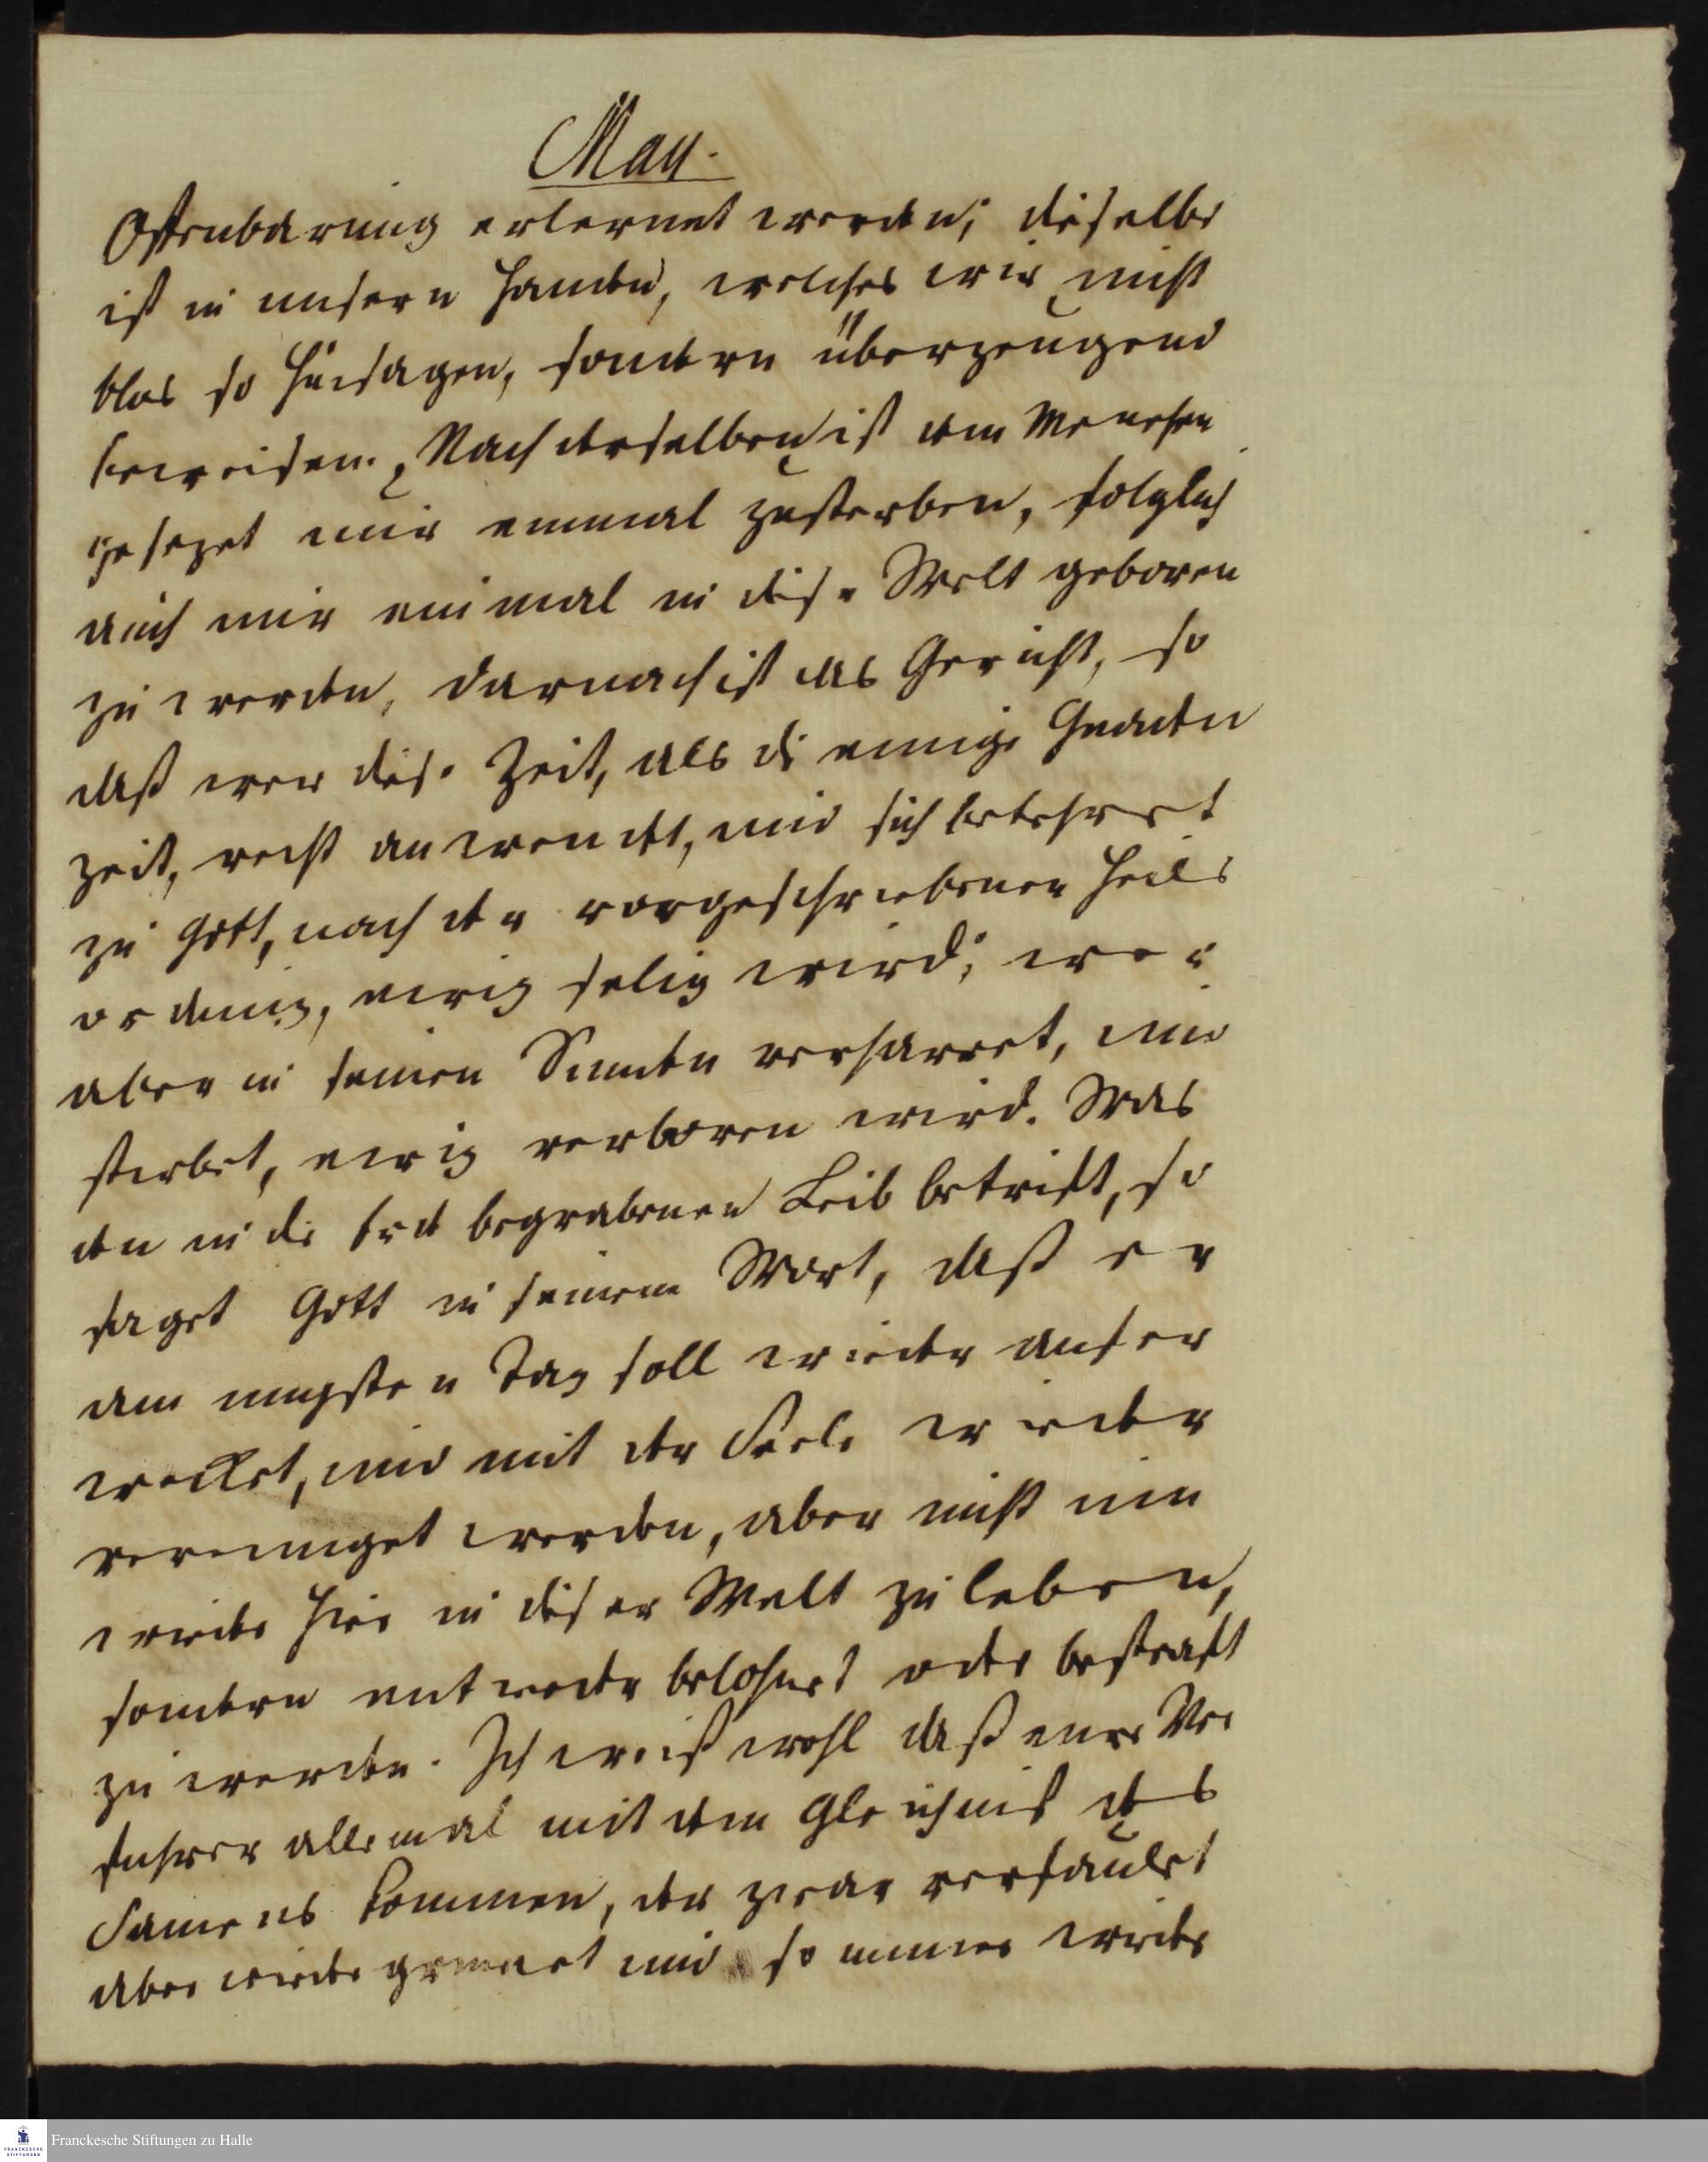 May.
Offenbarung erlernet werden; dieselbe
ist in unsern Handen, welches wir nicht
blos so hinsagen, sondern überzeugend
beweisen. Nach derselben ist dem Menschen
gesezet nur einmal zusterben, folglich
auch nur einmal in diese Welt geboren
zu werden, darnach ist das Gericht, so
daß wer diese Zeit, als die einige Gnaden
zeit, recht anwendet, und sich bekehret
zu Gott, nach der vorgeschriebenen Heils
ordnung, ewig selig wird; wer
aber in seinen Sunden verharret, und
stirbet, ewig verloren wird. Was
den in die Erde begrabenen Leib betrift, so
saget Gott in seinem Wort, daß er
am iungsten Tag soll wieder aufer
wecket, und mit der Seele wieder
vereiniget werden, aber nicht um
wieder hier in dieser Welt zu leben,
sondern entweder belohnet oder bestraft
zu werden. Ich weiß wohl daß eure Ver
fuhrer allemal mit dem Gleichniß des
Samens kommen, der zwar verfaulet
aber wieder grunet und so immer wieder
Franckesche Stiftungen zu Halle
FRANCKESCHE STIFTUNGEN